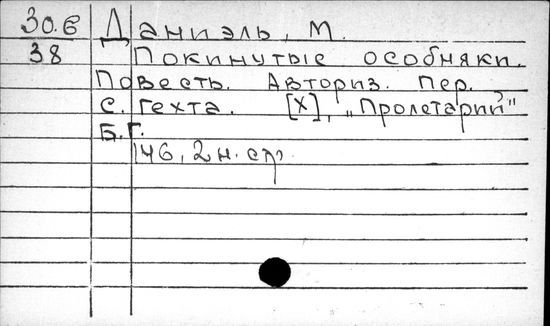 30.6 Даниэль, М.
38 Покинутые особняки.
Повесть. Авториз. пер.
С. Гехта. [Х], „Пролетарий"
Б.Г.
146, 2 н. стр.